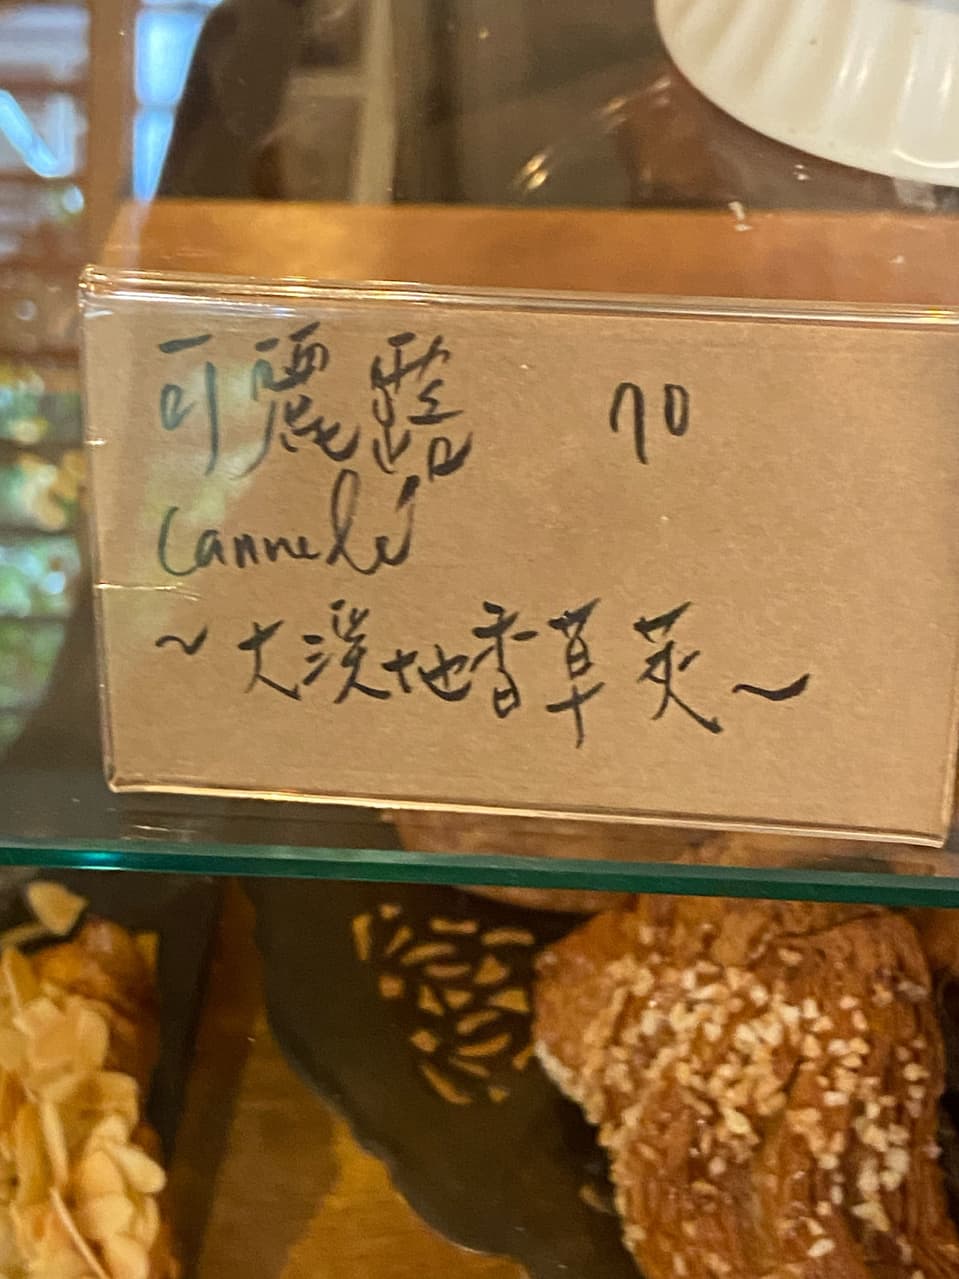 可麗露 70
Cannelé
~大溪地香草莢~